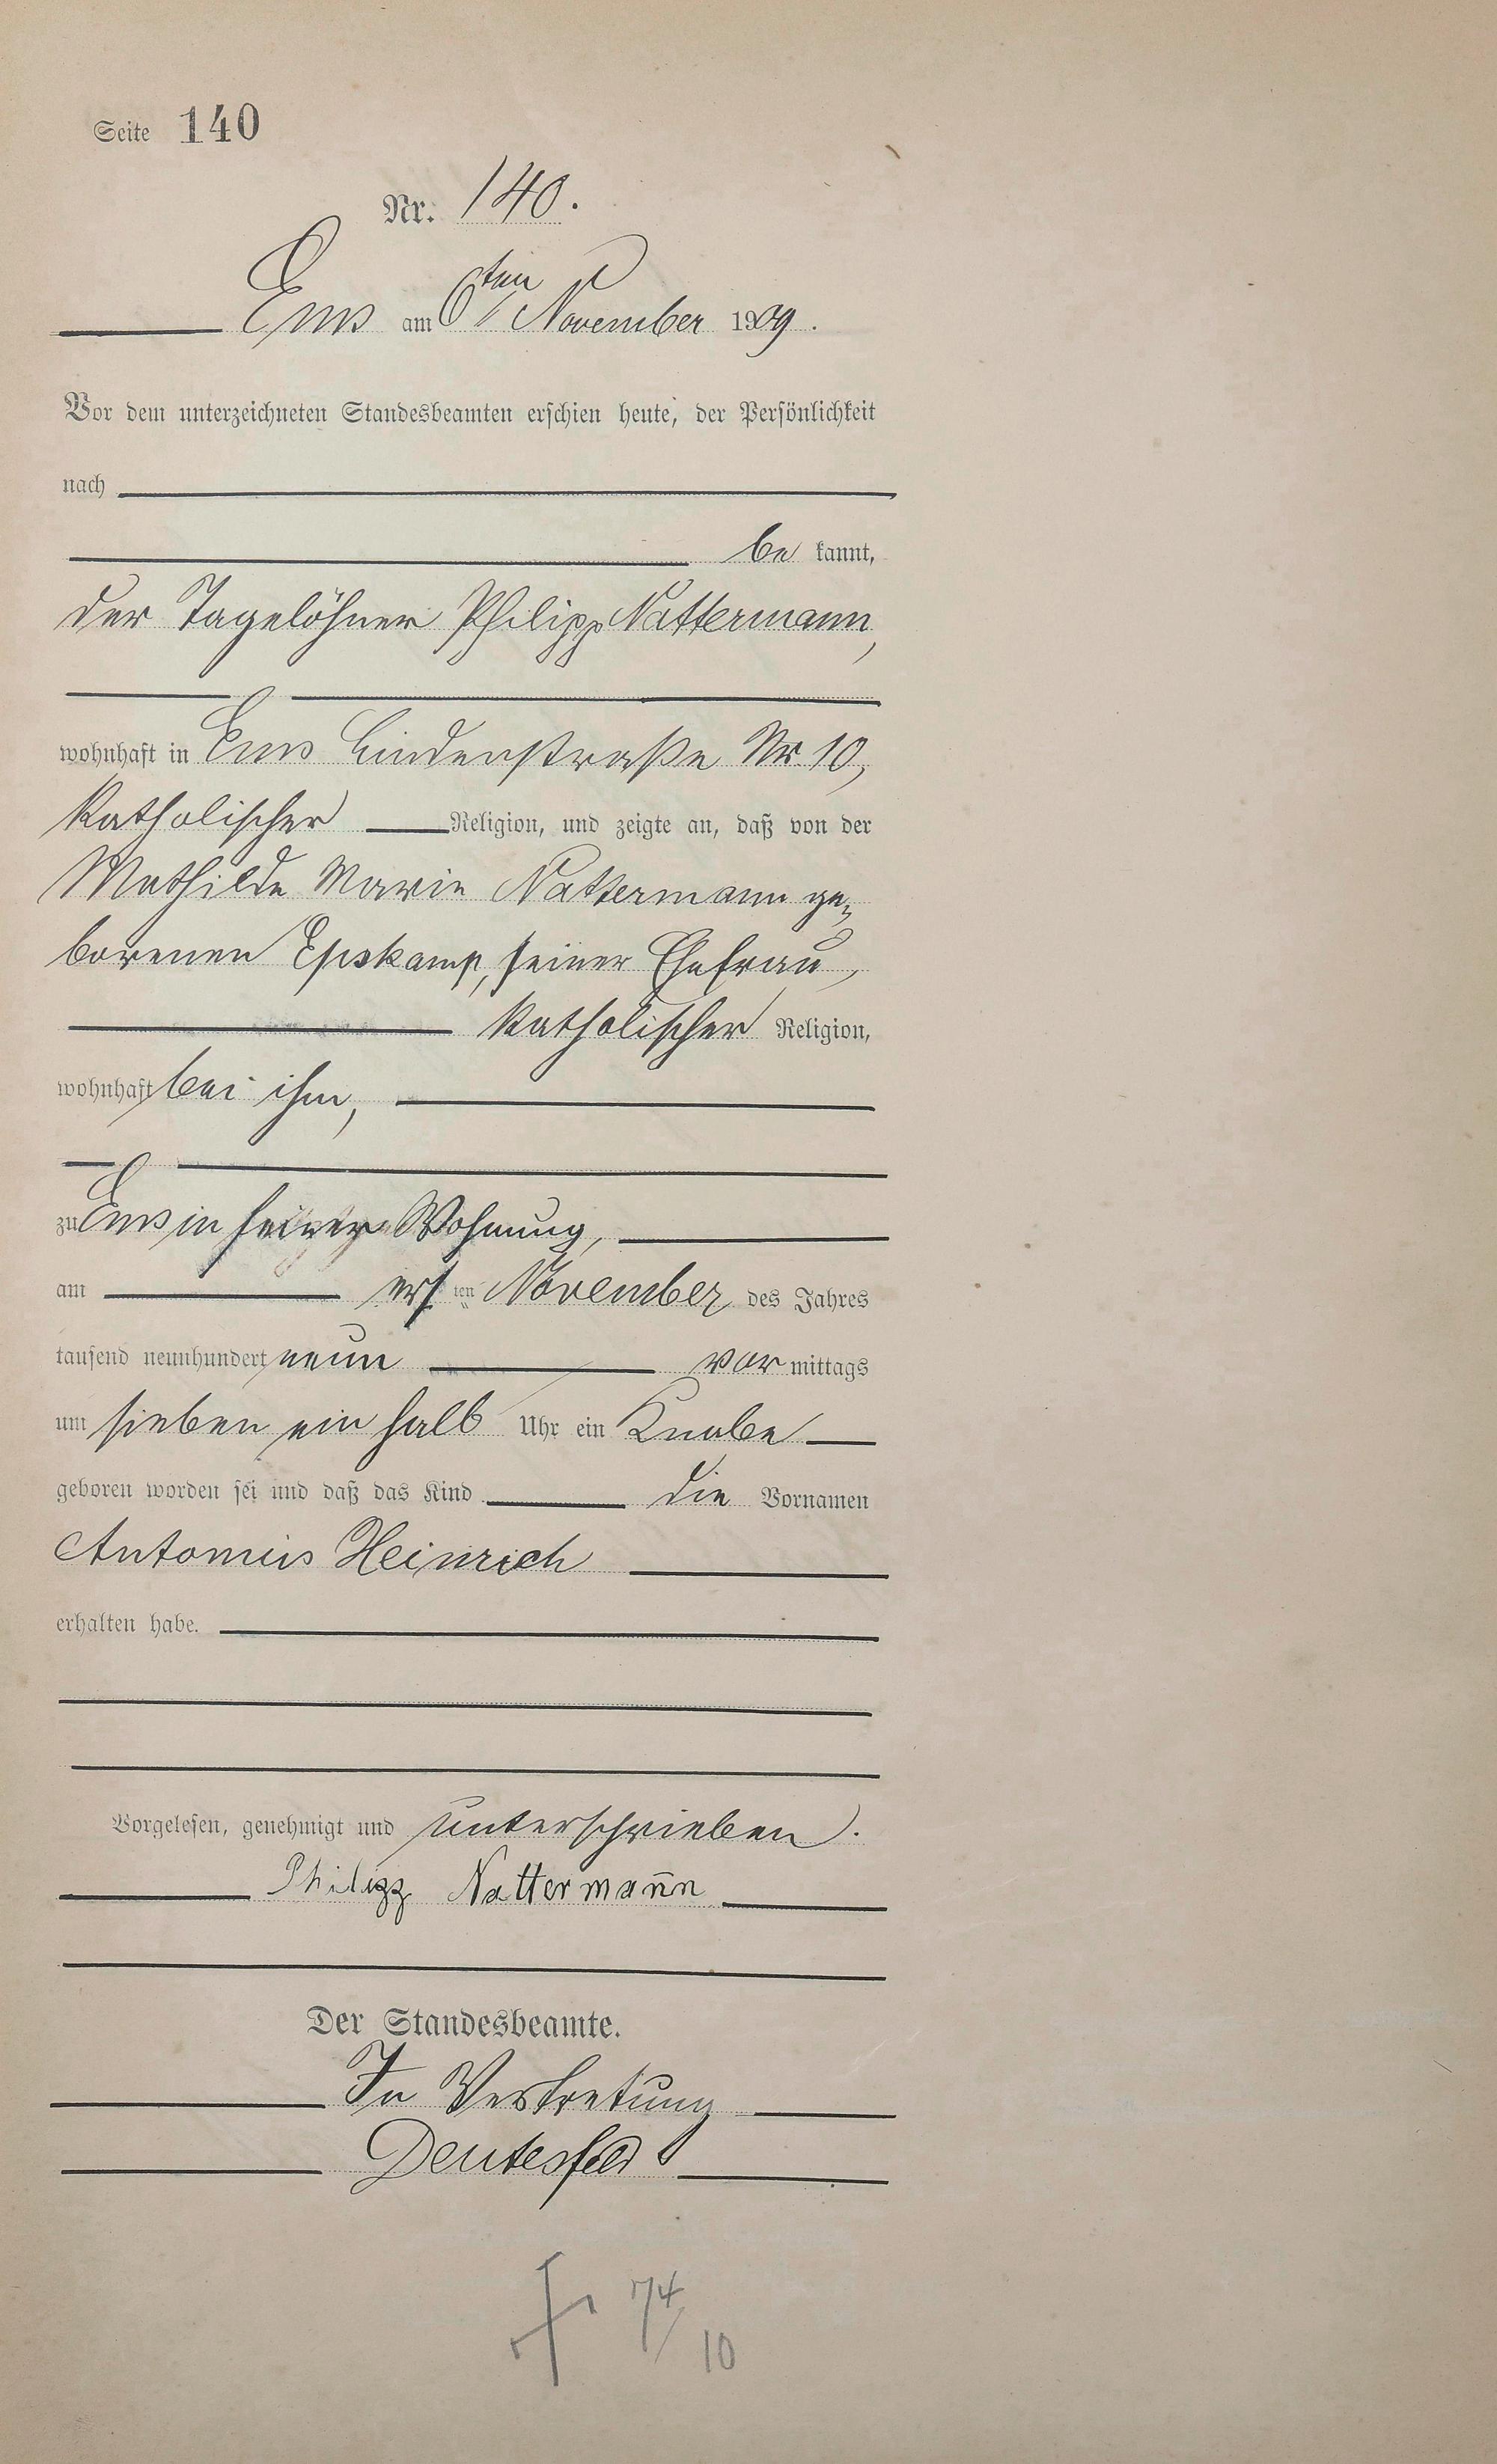 Seite 140
Nr. 140.
Ems am 6ten November 1909.
Vor dem unterzeichneten Standesbeamten erschien heute, der Persönlichkeit
nach
be kannt,
der Tagelöhner Philipp Nattermann,
wohnhaft in Ems Lindenstraße Nr. 10,
katholischer Religion, und zeigte an, daß von der
Mathilde Marie Nattermann ge-
borenen Epskamp, seiner Ehefrau,
katholischer Religion,
wohnhaft bei ihm,
zu Ems in seiner Wohnung,
am ersten November des Jahres
tausend neunhundert neun vor mittags
um sieben ein halb Uhr ein Knabe
geboren worden sei und daß das Kind die Vornamen
Antonius Heinrich
erhalten habe.
Vorgelesen, genehmigt und unterschrieben.
Philipp Nattermann̄
Der Standesbeamte.
In Vertretung
Deutesfeld
74/10